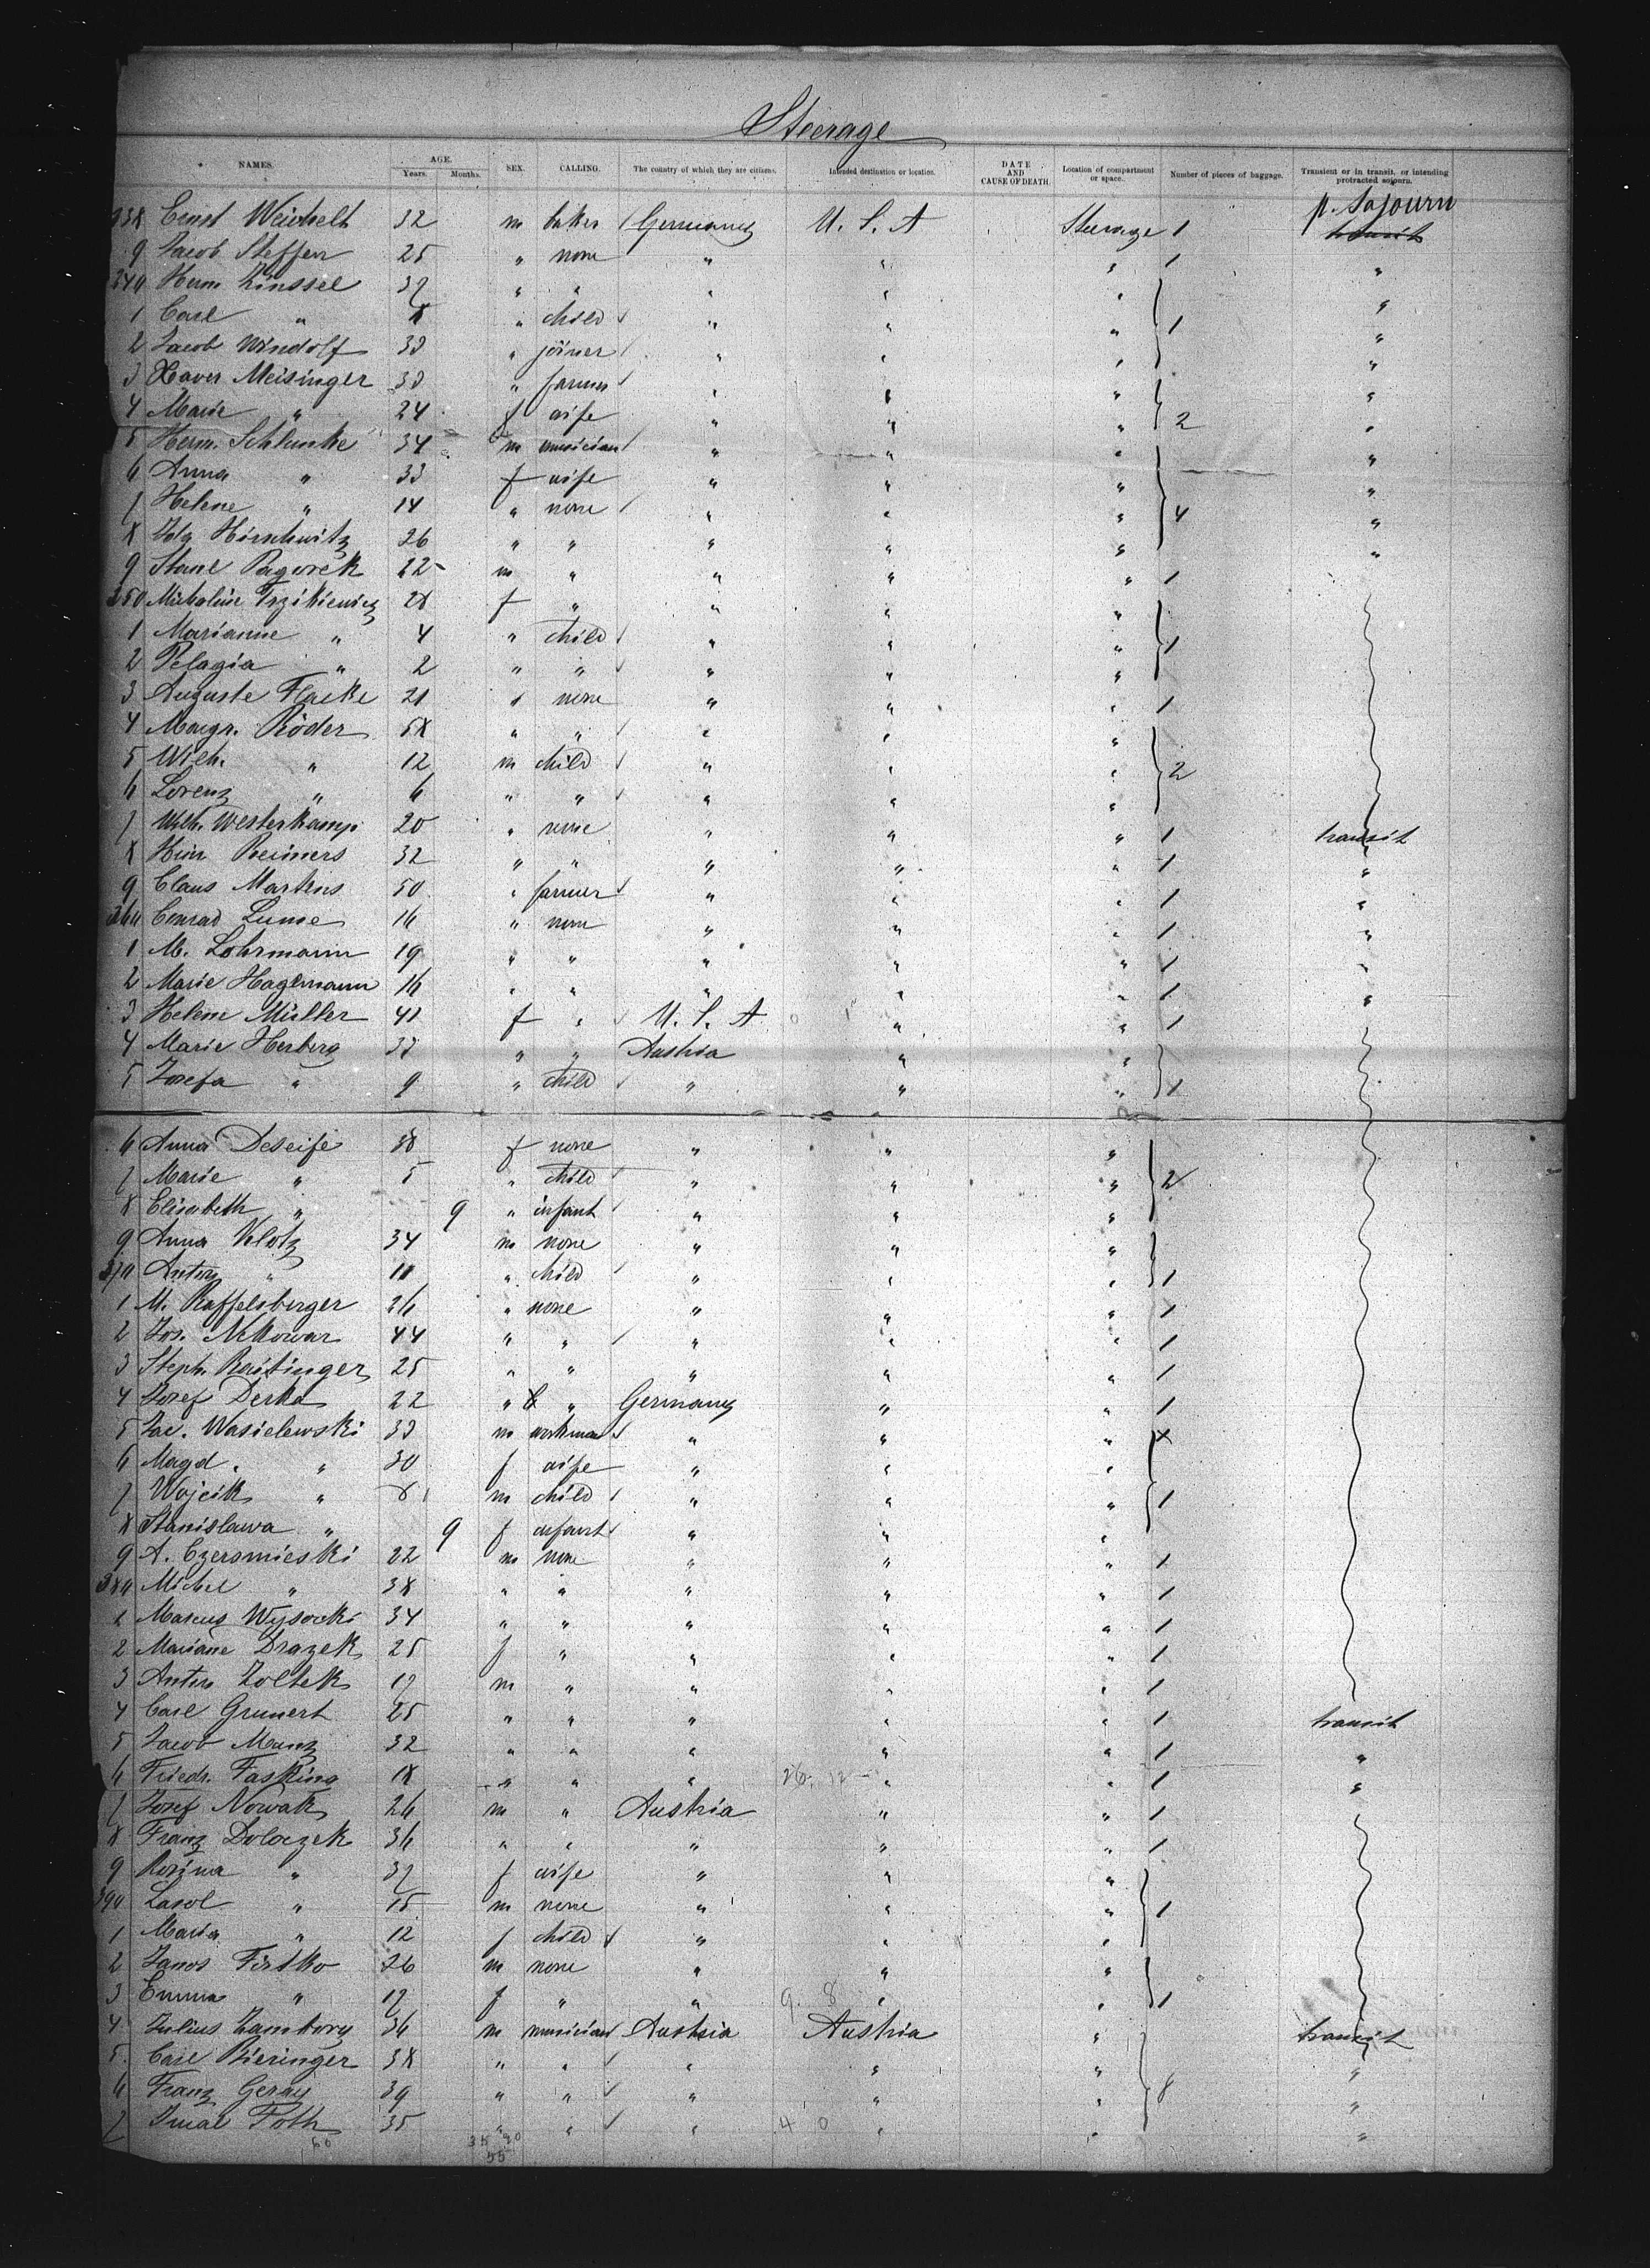 Steerage
NAMES. AGE. Years. Months. SEX. CALLING. The country of which they are citizens. Intended destination or location. DATE AND CAUSE OF DEATH. Location of compartment or space. Number of pieces of baggage. Transient or in transit, or intending protracted sojourn.
238 Ernst Weichselt 32 m baker / Germany U. S. A Steerage 1 p. Sojourn transit
9 Jacob Steffen 25 " none " " " 1 "
240 Herm. Kinssel 37 " " " " " "
1 Carl " 8 " child / " " " 1 "
2 Jacob Windolf 33 " joiner / " " " "
3 Xaver Meisinger 33 " farmer / " " " "
4 Marie " 24 f wife " " " 2 "
5 Herm. Schlunke 34 m musician / " " " "
6 Anna " 33 f wife " " " "
7 Helene " 14 " none / " " " 4 "
8 Ida Hirschwitz 26 " " " " " "
9 Stanl Pagorek 22 m " " " " 1
250 Michaline Trzikiewicz 28 f " " " "
1 Marianne " 4 " child / " " " 1
2 Pelagia " 2 " " / " " "
3 Auguste Flacke 21 " none " " " 1
4 Margr. Röder 58 " " / " " "
5 Wilh. " 12 m child / " " " 2
6 Lorenz " 6 " " / " " "
7 Wilh. Westerkamp 20 " none " " " 1 transit
8 Hinr Reimers 32 " " " " " 1 "
9 Claus Martens 50 " farmer / " " " 1 "
260 Conrad Lume 16 " none " " " 1 "
1 M. Lohrmann 19 " " " " " 1 "
2 Marie Hagemann 16 " " " " " 1 "
3 Helene Müller 41 f " / U. S. A " " 1
4 Marie Herberg 37 " " Austria " "
5 Josefa " 9 " child / " " " 1
6 Anna Deseife 38 f none " " "
7 Marie " 5 " child / " " " 2
8 Elisabeth " 9 " infant / " " "
9 Anna Klotz 34 m none " " "
270 Anton " 11 " child / " " " 1
1 M. Raffelsberger 26 " none " " " 1
2 Jos. Nekowar 44 " " / " " " 1
3 Steph. Raitinger 25 " " " " " 1
4 Josef Derka 22 " " Germany " " 1
5 Jac. Wasielewski 33 m workman / " " "
6 Magd. " 30 f wife " " "
7 Wojcik " 8 m child / " " " 1
8 Stanislawa " 9 f infant / " " "
9 A. Czeromieski 22 m none " " " 1
280 Michel " 38 " " " " " 1
1 Marcus Wysocki 34 " " " " " 1
2 Mariane Drazek 25 f " " " " 1
3 Anton Zoltek 17 m " " " " 1
4 Carl Grunert 25 " " " " " 1 transit
5 Jacob Munz 32 " " " " " 1 "
6 Friedr. Fasking 18 " " " " " 1 "
7 Josef Nowak 26 m " Austria " " 1
8 Franz Dolaczek 36 " " " " " 1
9 Rosina " 37 f wife " " "
290 Karol " 15 m none " " " 1
1 Maria " 12 f child / " " "
2 Janos Firtko 26 m none " " "
3 Emma " 17 f " " 9. 8 " " 1
4 Julius Zambory 36 m musician Austria Austria " transit
5 Carl Bieringer 38 " " / " " " "
6 Franz Geray 39 " " / " " " 8 "
7 Toth 35 " " / " 4 0 " " "
60 35 20
55